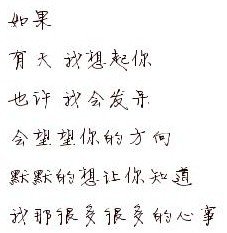 如果
有天 我想起你
也许 我会发呆
会望望你的方向
默默的想让你知道
我那很多很多的心事